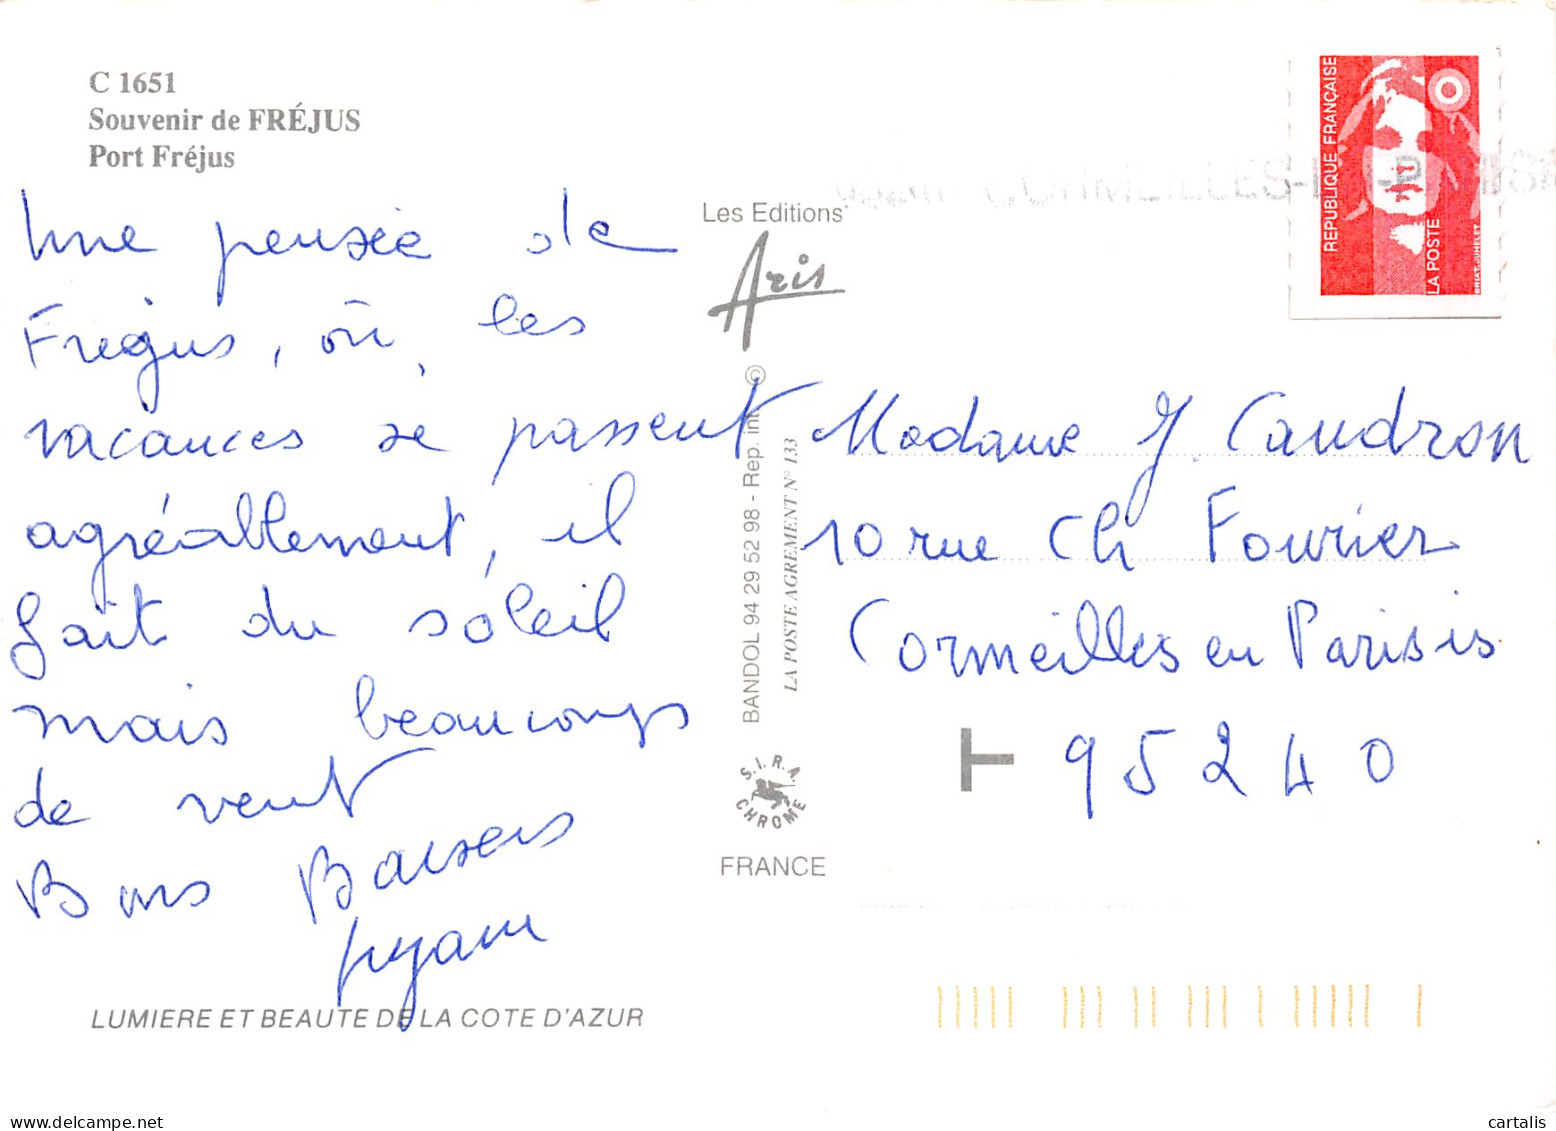 C 1651
Souvenir de FRÉJUS
Port Fréjus
Une pensée de
Frejus, où, les
vacances se passent
agréablement, il
fait du soleil
mais beaucoups
de vent
Bons Baisers
Les Editions
Aris
BANDOL 94 29 52 98 - Rep. int. ©
LA POSTE AGREMENT N° 133
S.I.R.A.
CHROME
FRANCE
LUMIERE ET BEAUTE DE LA COTE D'AZUR
REPUBLIQUE FRANÇAISE
LA POSTE
BRIAT-JUMELET
CORMEILLES-
Madame J. Caudron
10 rue Ch Fourier
Cormeilles en Parisis
T 95240
cartalis